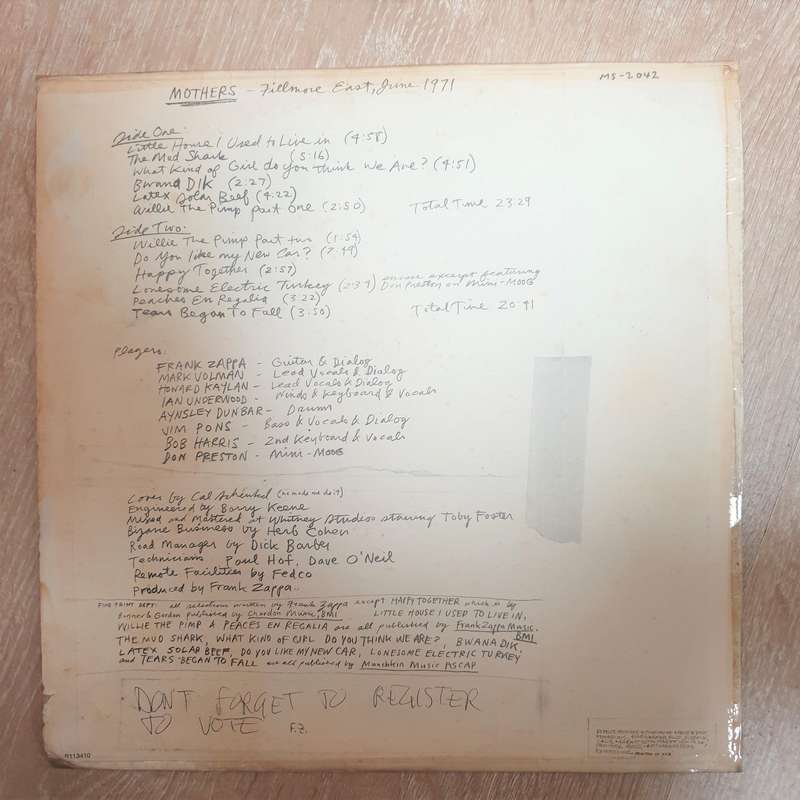 MOTHERS - Fillmore East, June 1971
MS-2042
Side One:
Little House I Used to Live in (4:58)
The Mud Shark (5:16)
What Kind of Girl do you think we Are? (4:51)
Bwana Dik (2:27)
Latex Solar Beef (4:22)
Willie The Pimp part one (2:50) Total Time 23:29
Side Two:
Willie The Pimp Part two (1:54)
Do You like my New Car? (7:49)
Happy Together (2:57)
Lonesome Electric Turkey (2:39) encore excerpt featuring
Don Preston on Mini-MOOG
Peaches En Regalia (3:22)
Tears Began To Fall (3:50) Total Time 20:41
Players:
FRANK ZAPPA - Guitar & Dialog
MARK VOLMAN - Lead Vocals & Dialog
HOWARD KAYLAN - Lead Vocals & Dialog
IAN UNDERWOOD - Winds & Keyboard & Vocals
AYNSLEY DUNBAR - Drums
JIM PONS - Bass & Vocals & Dialog
BOB HARRIS - 2nd Keyboard & Vocals
DON PRESTON - Mini-MOOG
Cover by Cal Schenkel (he made me do it)
Engineered by Barry Keene
Mixed and Mastered at Whitney Studios starring Toby Foster
Bizarre Business by Herb Cohen
Road Manager by Dick Barber
Technicians Paul Hof, Dave O'Neil
Remote Facilities by Fedco
Produced by Frank Zappa..
FINE PRINT DEPT: all selections written by Frank Zappa except HAPPY TOGETHER which is by
Bonner & Gordon published by Chardon Music, BMI LITTLE HOUSE I USED TO LIVE IN,
WILLIE THE PIMP & PEACES EN REGALIA are all published by Frank Zappa Music, BMI
THE MUD SHARK, WHAT KIND OF GIRL DO YOU THINK WE ARE?, BWANA DIK,
LATEX SOLAR BEEF, DO YOU LIKE MY NEW CAR, LONESOME ELECTRIC TURKEY
and TEARS BEGAN TO FALL are all published by Munchkin Music ASCAP
DON'T FORGET TO REGISTER
TO VOTE F.Z.
R113410